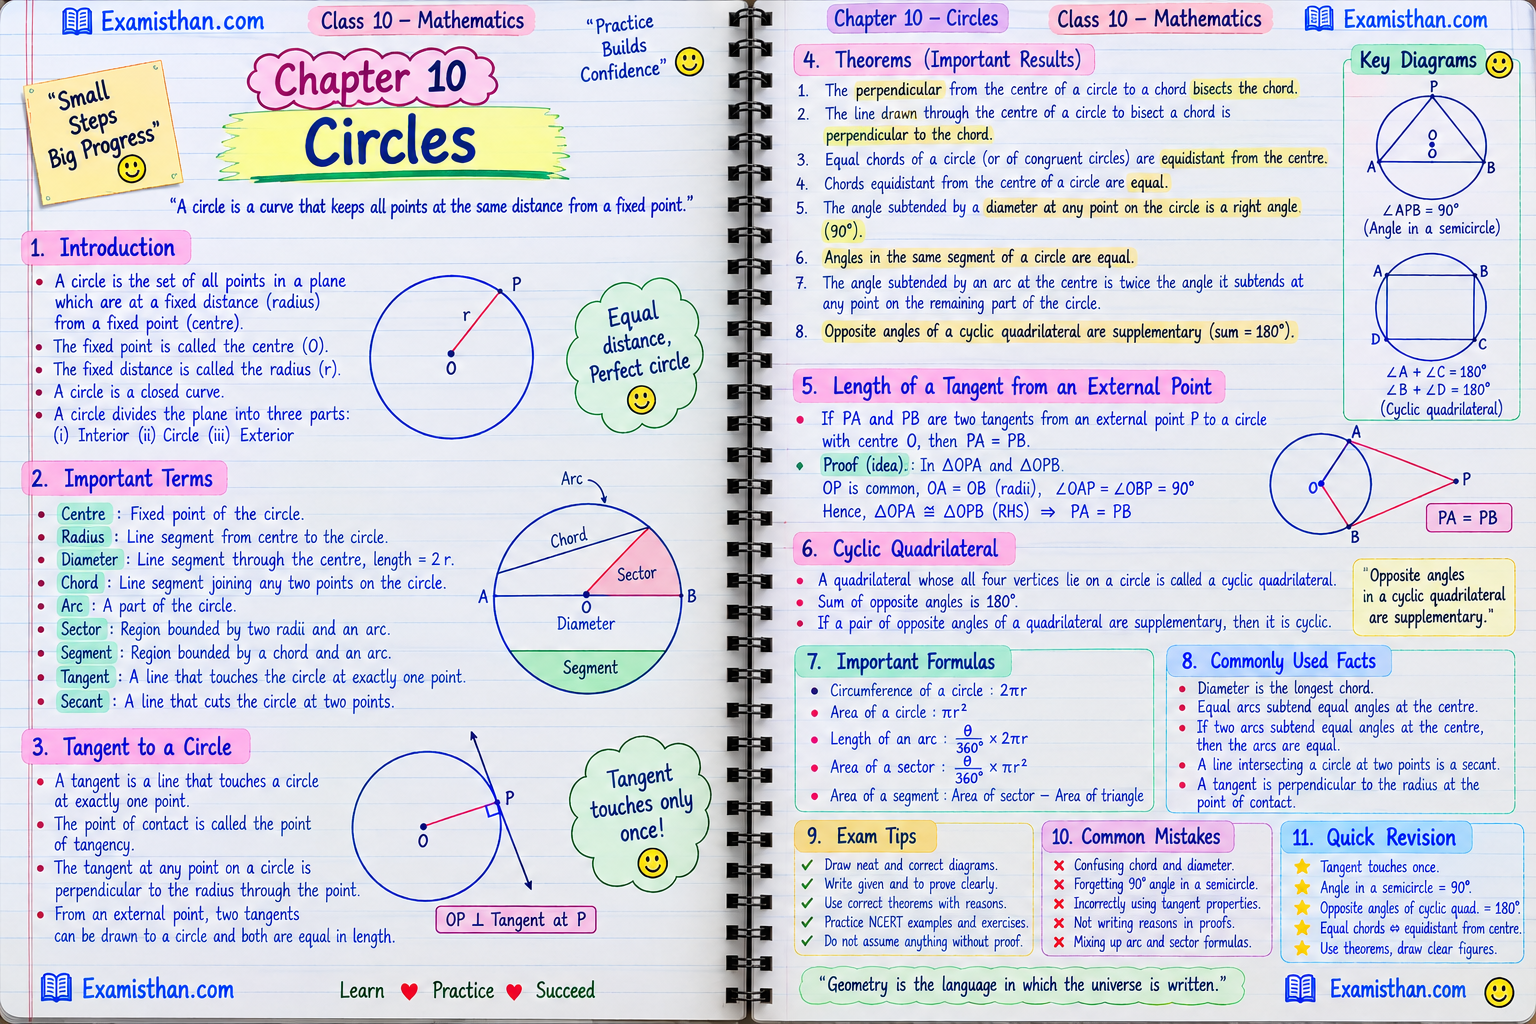 Examisthan.com
Class 10 – Mathematics
“Practice
Builds
Confidence”
“Small
Steps
Big Progress”
Chapter 10
Circles
“A circle is a curve that keeps all points at the same distance from a fixed point.”
1. Introduction
• A circle is the set of all points in a plane
which are at a fixed distance (radius)
from a fixed point (centre).
• The fixed point is called the centre (O).
• The fixed distance is called the radius (r).
• A circle is a closed curve.
• A circle divides the plane into three parts:
(i) Interior (ii) Circle (iii) Exterior
P
r
O
Equal
distance,
Perfect circle
2. Important Terms
• Centre : Fixed point of the circle.
• Radius : Line segment from centre to the circle.
• Diameter : Line segment through the centre, length = 2 r.
• Chord : Line segment joining any two points on the circle.
• Arc : A part of the circle.
• Sector : Region bounded by two radii and an arc.
• Segment : Region bounded by a chord and an arc.
• Tangent : A line that touches the circle at exactly one point.
• Secant : A line that cuts the circle at two points.
Arc
Chord
Sector
A
O
B
Diameter
Segment
3. Tangent to a Circle
• A tangent is a line that touches a circle
at exactly one point.
• The point of contact is called the point
of tangency.
• The tangent at any point on a circle is
perpendicular to the radius through the point.
• From an external point, two tangents
can be drawn to a circle and both are equal in length.
P
O
OP ⊥ Tangent at P
Tangent
touches only
once!
Examisthan.com
Learn ♥ Practice ♥ Succeed
Chapter 10 – Circles
Class 10 – Mathematics
Examisthan.com
4. Theorems (Important Results)
1. The perpendicular from the centre of a circle to a chord bisects the chord.
2. The line drawn through the centre of a circle to bisect a chord is
perpendicular to the chord.
3. Equal chords of a circle (or of congruent circles) are equidistant from the centre.
4. Chords equidistant from the centre of a circle are equal.
5. The angle subtended by a diameter at any point on the circle is a right angle
(90°).
6. Angles in the same segment of a circle are equal.
7. The angle subtended by an arc at the centre is twice the angle it subtends at
any point on the remaining part of the circle.
8. Opposite angles of a cyclic quadrilateral are supplementary (sum = 180°).
Key Diagrams
P
O
O
A
B
∠APB = 90°
(Angle in a semicircle)
A
B
D
C
∠A + ∠C = 180°
∠B + ∠D = 180°
(Cyclic quadrilateral)
5. Length of a Tangent from an External Point
• If PA and PB are two tangents from an external point P to a circle
with centre O, then PA = PB.
♦ Proof (idea). : In △OPA and △OPB.
OP is common, OA = OB (radii), ∠OAP = ∠OBP = 90°
Hence, △OPA ≅ △OPB (RHS) ⇒ PA = PB
A
O
P
B
PA = PB
6. Cyclic Quadrilateral
• A quadrilateral whose all four vertices lie on a circle is called a cyclic quadrilateral.
• Sum of opposite angles is 180°.
• If a pair of opposite angles of a quadrilateral are supplementary, then it is cyclic.
"Opposite angles
in a cyclic quadrilateral
are supplementary."
7. Important Formulas
• Circumference of a circle : 2πr
• Area of a circle : πr²
• Length of an arc : θ/360° × 2πr
• Area of a sector : θ/360° × πr²
• Area of a segment : Area of sector – Area of triangle
8. Commonly Used Facts
• Diameter is the longest chord.
• Equal arcs subtend equal angles at the centre.
• If two arcs subtend equal angles at the centre,
then the arcs are equal.
• A line intersecting a circle at two points is a secant.
• A tangent is perpendicular to the radius at the
point of contact.
9. Exam Tips
✓ Draw neat and correct diagrams.
✓ Write given and to prove clearly.
✓ Use correct theorems with reasons.
✓ Practice NCERT examples and exercises.
✓ Do not assume anything without proof.
10. Common Mistakes
✗ Confusing chord and diameter.
✗ Forgetting 90° angle in a semicircle.
✗ Incorrectly using tangent properties.
✗ Not writing reasons in proofs.
✗ Mixing up arc and sector formulas.
11. Quick Revision
★ Tangent touches once.
★ Angle in a semicircle = 90°.
★ Opposite angles of cyclic quad. = 180°.
★ Equal chords ⇔ equidistant from centre.
★ Use theorems, draw clear figures.
“Geometry is the language in which the universe is written.”
Examisthan.com